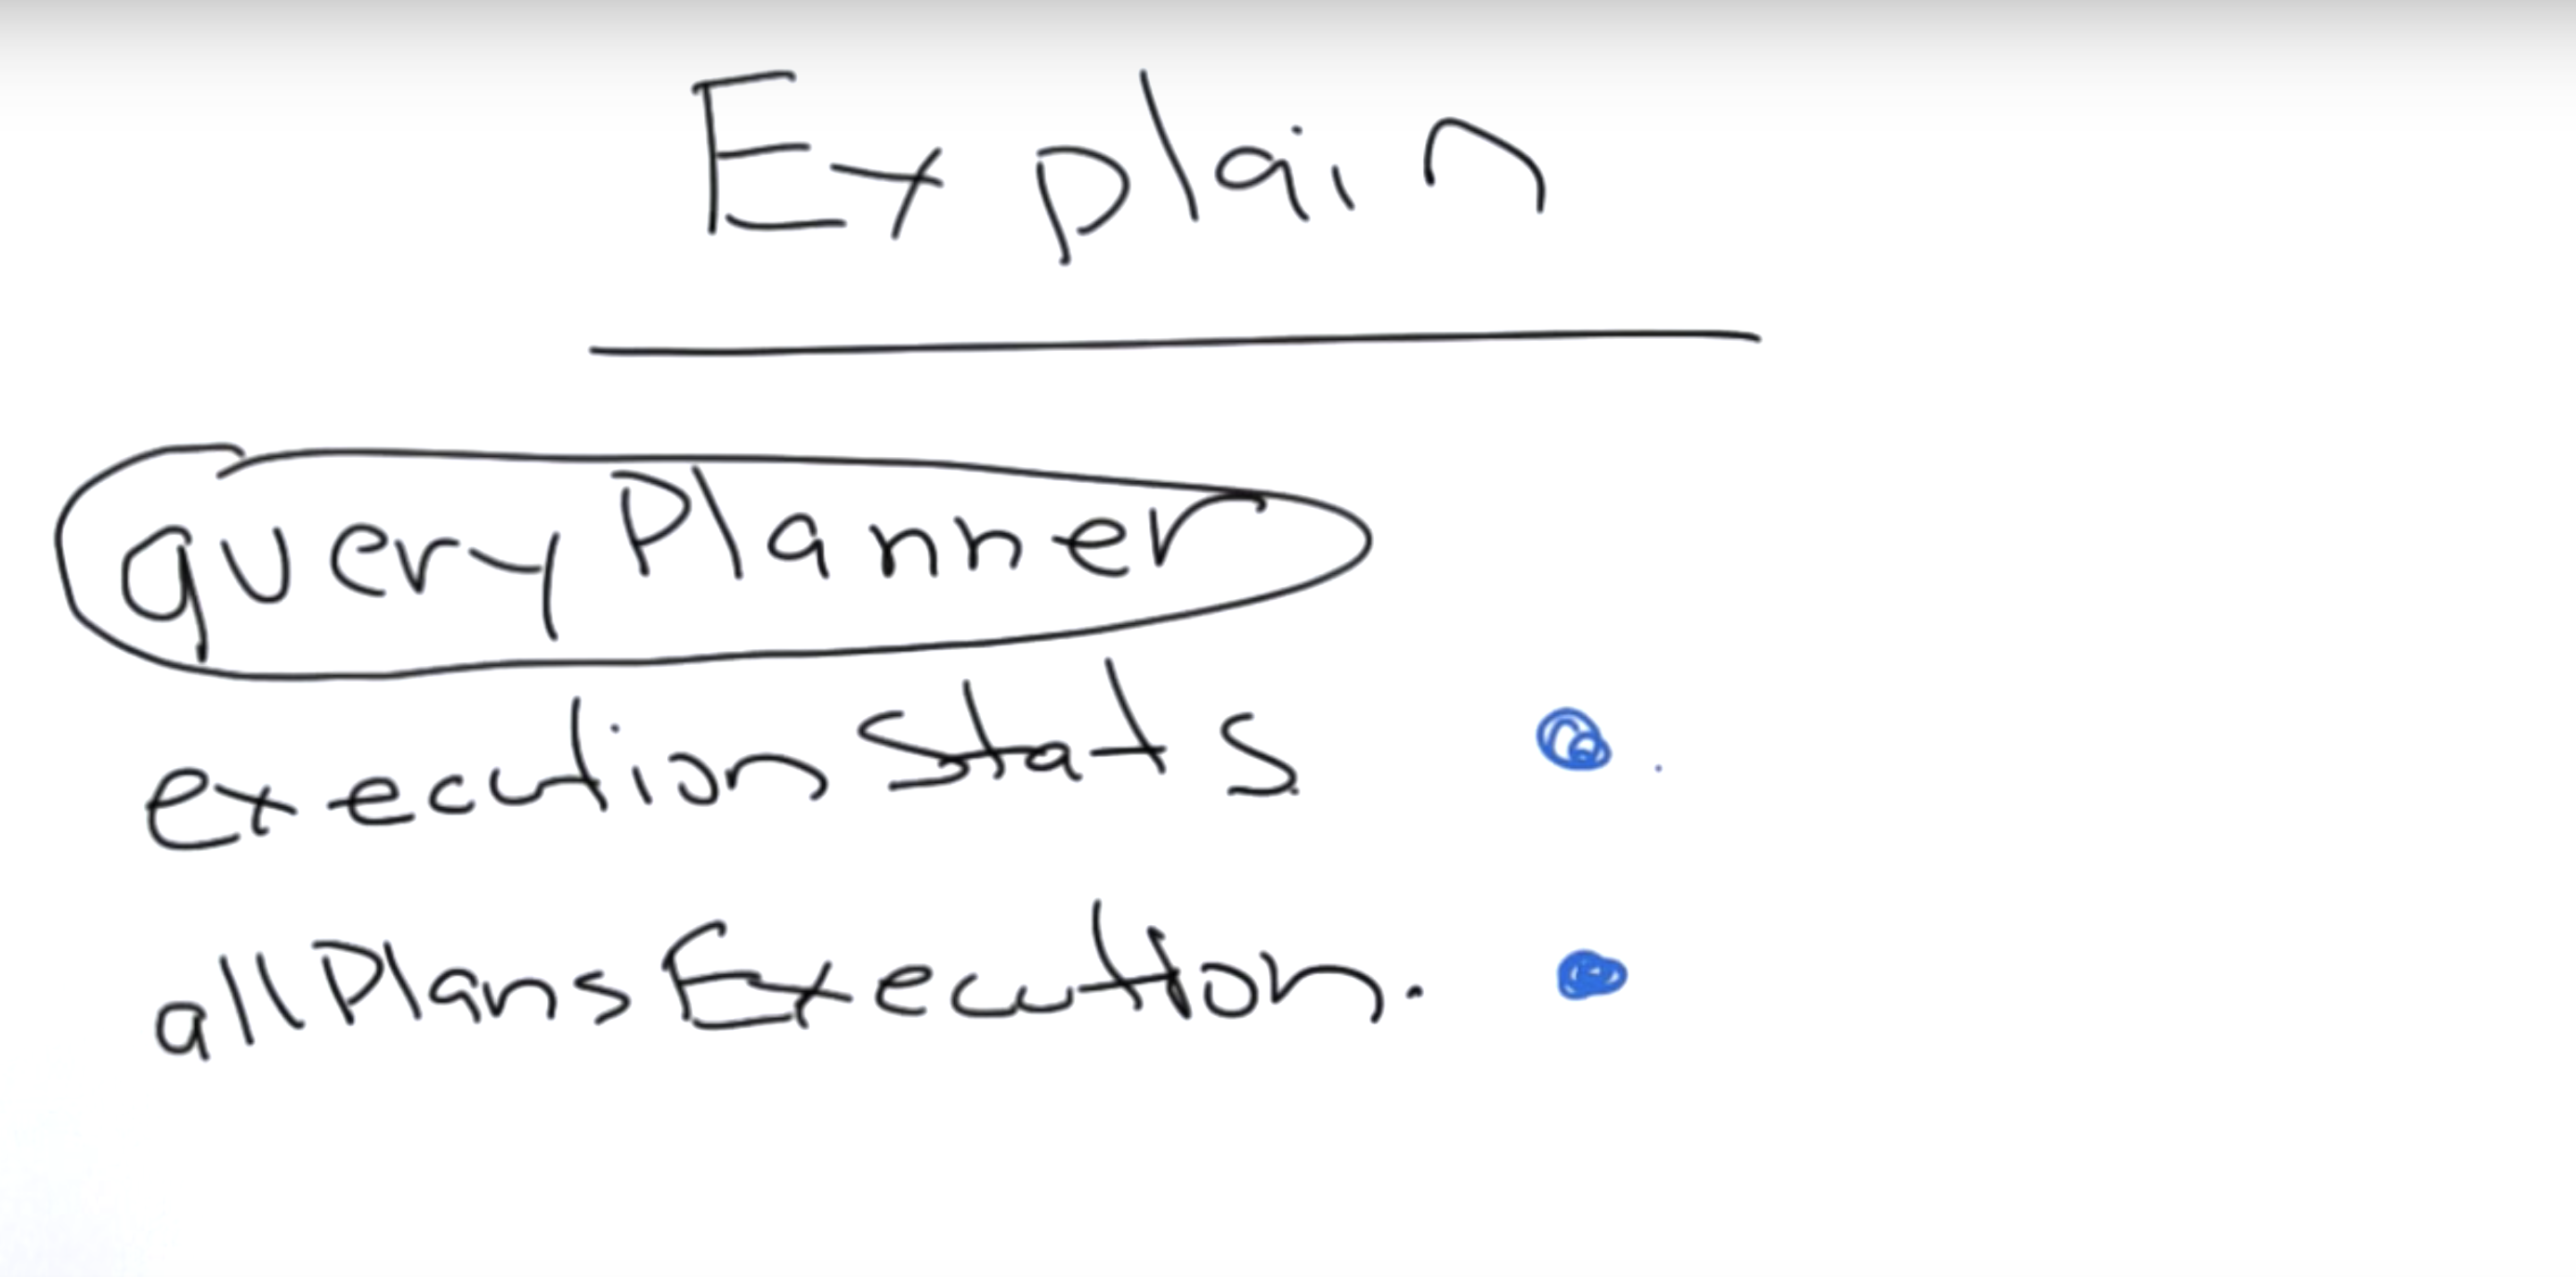 Explain
queryPlanner
executionStats
allPlansExecution.